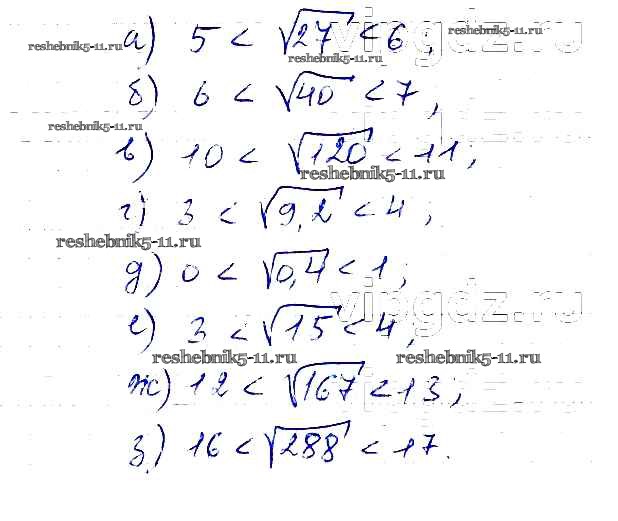 а) 5 < √27 < 6;
vipgdz.ru
reshebnik5-11.ru
reshebnik5-11.ru
reshebnik5-11.ru
б) 6 < √40 < 7;
vipgdz.ru
reshebnik5-11.ru
в) 10 < √120 < 11;
reshebnik5-11.ru
г) 3 < √9,2 < 4;
reshebnik5-11.ru
д) 0 < √0,4 < 1;
vipgdz.ru
е) 3 < √15 < 4,
reshebnik5-11.ru
reshebnik5-11.ru
ж) 12 < √167 < 13;
vipgdz.ru
з) 16 < √288 < 17.